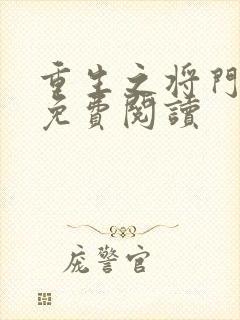 重生之将門
免費閱讀
庞警官